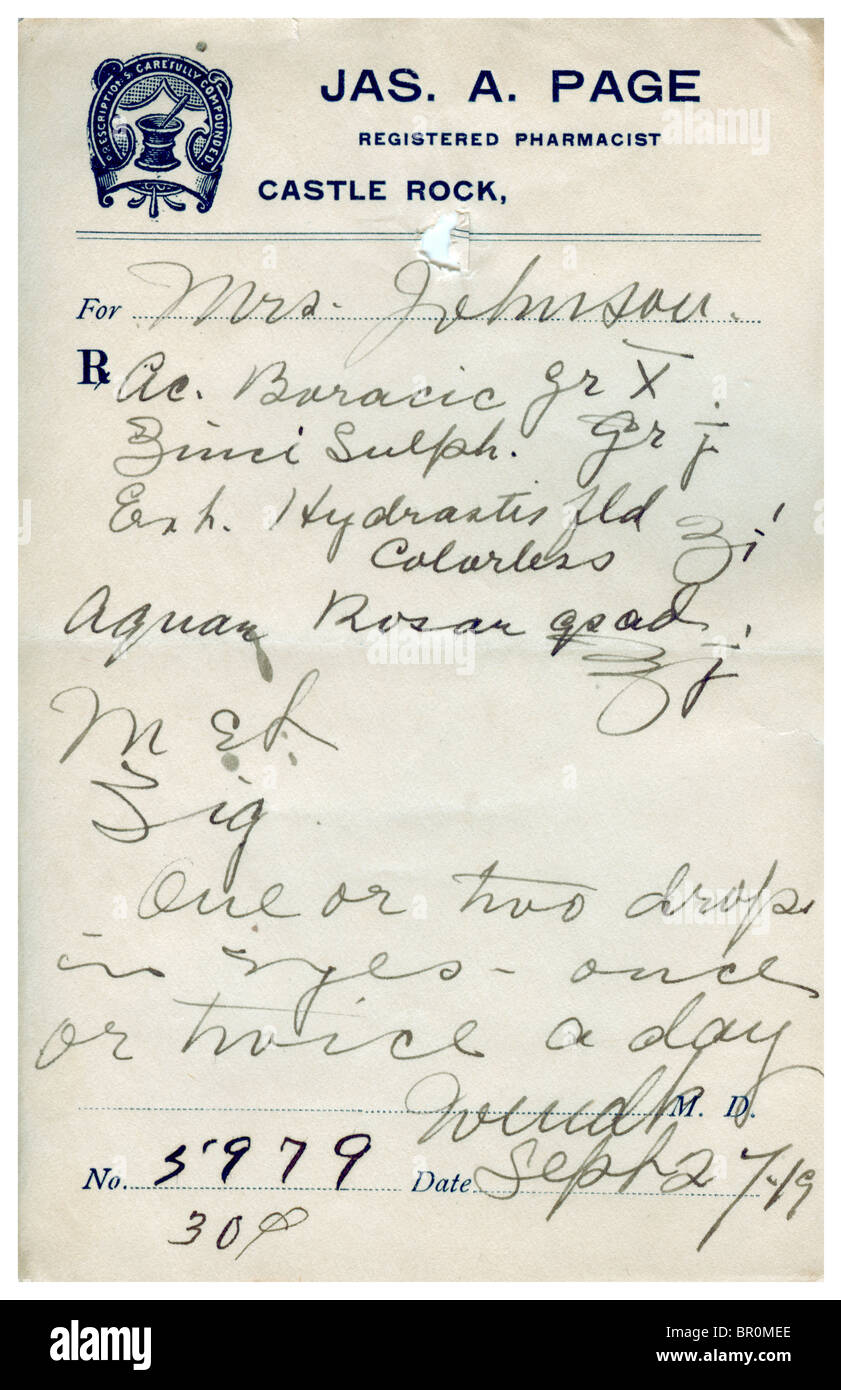 PRESCRIPTIONS CAREFULLY COMPOUNDED
JAS. A. PAGE
REGISTERED PHARMACIST
CASTLE ROCK,
For Mrs. Johnson.
Rx Ac. Boracic gr X
Zinci Sulph. Gr j
Ext. Hydrastis fld
Colorless ʒi
Aquae Rosae qs ad
℥j
M Et
Sig
One or two drops
in eyes - once
or twice a day
M. D.
No. 5979 Date Sept 27-19
30¢
alamy
a
alamy
Image ID: BR0MEE
www.alamy.com